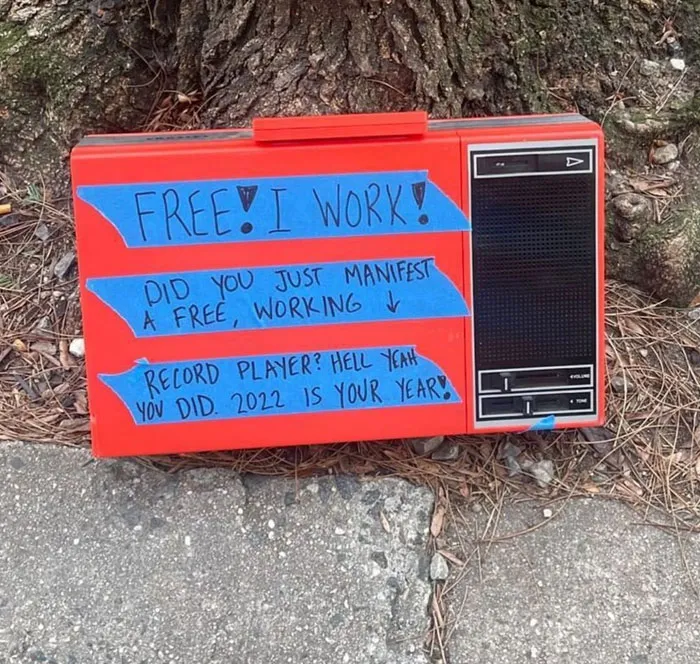 FREE! I WORK!
DID YOU JUST MANIFEST
A FREE, WORKING ↓
RECORD PLAYER? HELL YEAH
YOU DID. 2022 IS YOUR YEAR!
VOLUME
TONE